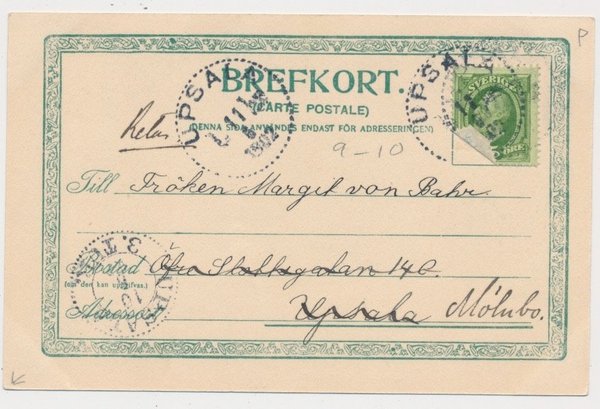 P
BREFKORT.
(CARTE POSTALE)
(DENNA SIDA ANVÄNDES ENDAST FÖR ADRESSERINGEN)
UPSALA
11
1902
UPSALA
SVERIGE
ÖRE
9-10
Till Fröken Margit von Bahr
Bostad Öfre Slottsgatan 14C.
(om den kan uppgifvas.)
Adressort Upsala Mölnbo.
UPSALA
3. TUR
10